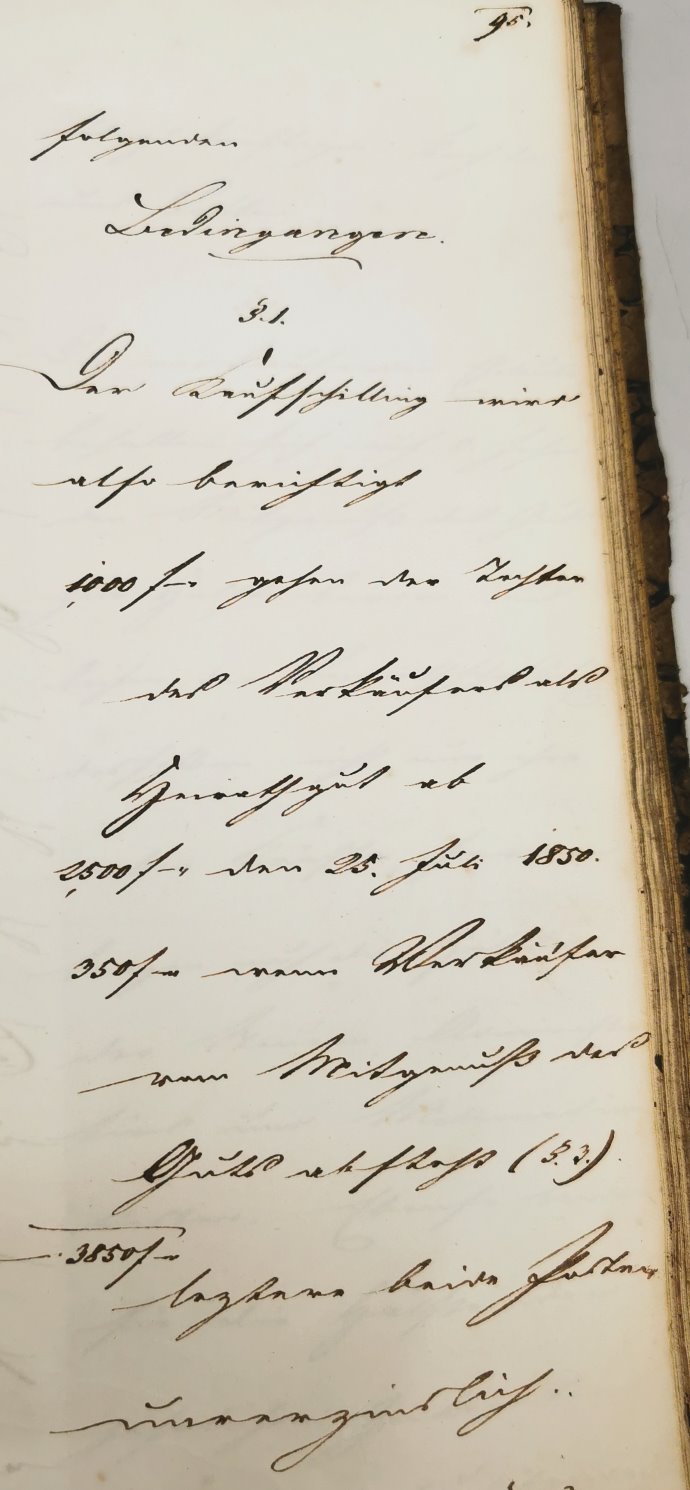 95.
folgenden
Bedingungen.
§. 1.
Der Kaufschilling wird
also berichtigt
1000 f –. gehen der Tochter
des Verkäufers als
Heirathgut ab
2500 f –. den 25. Juli 1850.
350 f –. wenn Verkäufer
vom Mitgenuß des
Guts absteht (§. 3.)
3850 f –.
leztere beide Posten
unverzinslich.